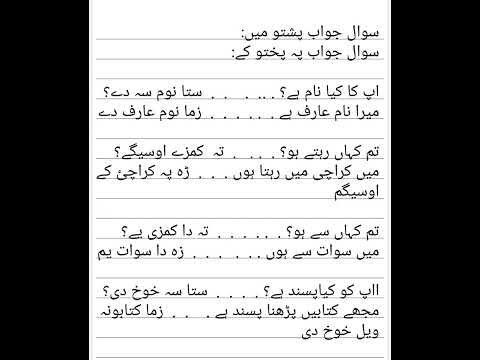 سوال جواب پشتو میں:
سوال جواب پہ پختو کے:
اپ کا کیا نام ہے؟ . . . . . . ستا نوم سہ دے؟
میرا نام عارف ہے . . . . . . زما نوم عارف دے
تم کہاں رہتے ہو؟ . . . . . تہ کمزے اوسیگے؟
میں کراچی میں رہتا ہوں . . . . ژہ پہ کراچئ کے
اوسیگم
تم کہاں سے ہو؟ . . . . . . تہ دا کمزی یے؟
میں سوات سے ہوں . . . . . . زہ دا سوات یم
ااپ کو کیاپسند ہے؟ . . . . . ستا سہ خوخ دی؟
مجھے کتابیں پڑھنا پسند ہے . . . . زما کتابونہ
ویل خوخ دی